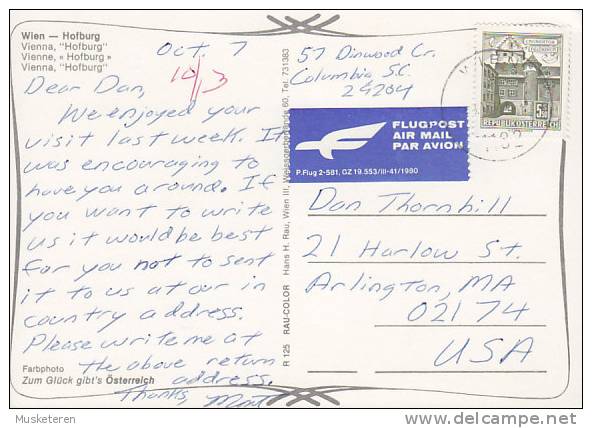 Wien — Hofburg
Vienna, "Hofburg"
Vienne, « Hofburg »
Vienna, "Hofburg"
Oct. 7
10/3
Dear Dan,
We enjoyed your
visit last week. It
was encouraging to
have you around. If
you want to write
us it would be best
for you not to sent
it to us at our in
country address.
Please write me at
the above return
address.
Thanks, Matt
Farbphoto
Zum Glück gibt's Österreich
R 125 RAU-COLOR Hans H. Rau, Wien III, 60, Tel. 731383
57 Dinwood Cr.
Columbia S.C.
29204
FLUGPOST
AIR MAIL
PAR AVION
P.Flug 2-581, GZ 19.553/III-41/1980
5.50
REPUBLIK ÖSTERREICH
Dan Thornhill
21 Harlow St.
Arlington, MA
02174
USA
© Musketeren
delcampe.net